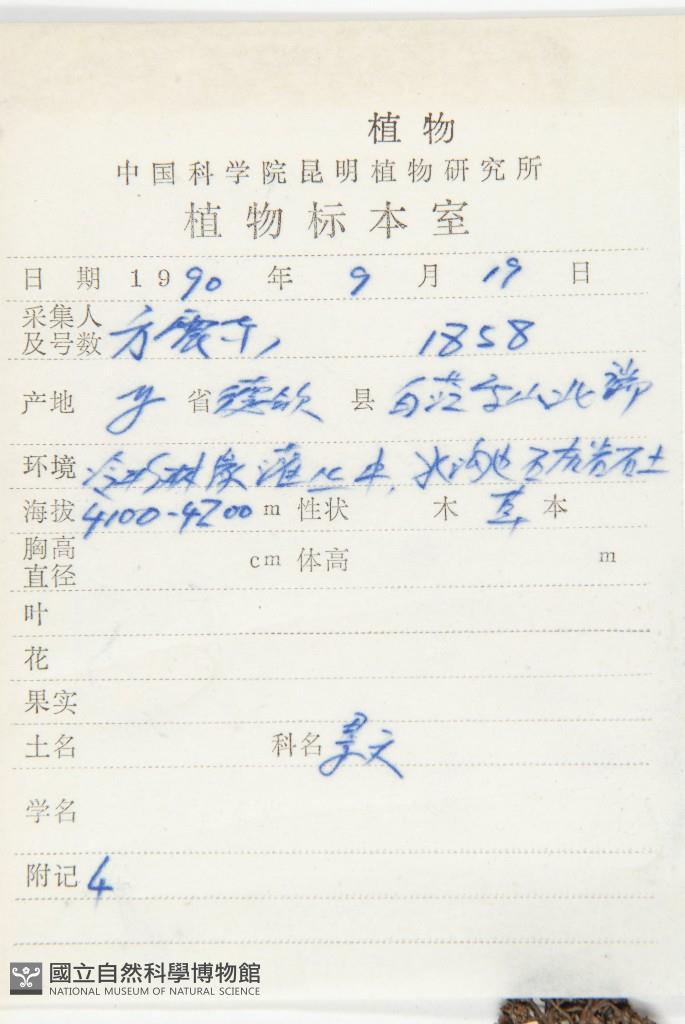 植物
中国科学院昆明植物研究所
植物标本室
日期 1990 年 9 月 19 日
采集人及号数 方震东, 1858
产地 省德钦 县 白茫雪山北端
环境 冷杉林 灌丛中,
海拔 4100-4200 m 性状 木 草 本
胸高直径 cm 体高 m
叶
花
果实
土名 科名
学名
附记 4
國立自然科學博物館
NATIONAL MUSEUM OF NATURAL SCIENCE